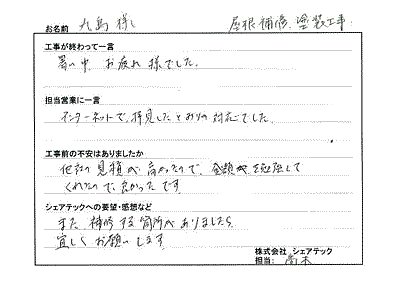 お名前 丸島 様 屋根補修、塗装工事
工事が終わって一言
暑い中、お疲れ様でした。
担当営業に一言
インターネットで、拝見したとおりの対応でした。
工事前の不安はありましたか
他社の見積が高かったので、金額が、を勉強して
くれたので、良かったです
シェアテックへの要望・感想など
また、補修する箇所がありましたら
宜しくお願いします
株式会社 シェアテック
担当: 高木